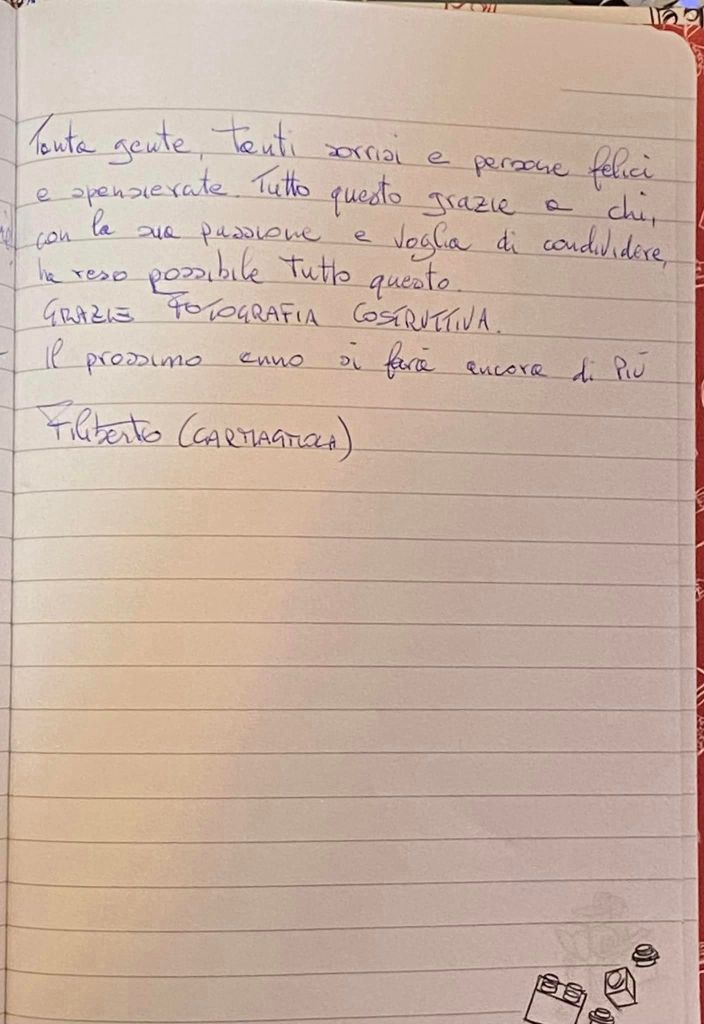 Tanta gente, tanti sorrisi e persone felici
e spensierate. Tutto questo grazie a chi,
con la sua passione e voglia di condividere,
ha reso possibile tutto questo.
GRAZIE FOTOGRAFIA COSTRUTTIVA.
Il prossimo anno si farà ancora di più
Filiberto (CARMAGNOLA)